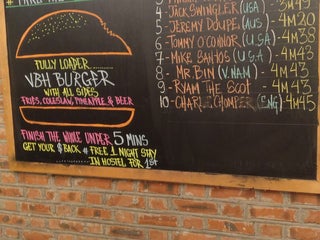 FULLY LOADER
VBH BURGER
WITH ALL SIDES
FRIES, COLESLAW, PINEAPPLE, & BEER
FINISH THE WHOLE UNDER 5 MINS
GET YOUR $ BACK & FREE 1 NIGHT STAY
IN HOSTEL FOR 1ST
4 - JACK SWINGLER (USA) - 3M49
5 - JEREMY DOUPE (AUS) - 4M20
6 - TOMMY O'CONNOR (USA) - 4M38
7 - MIKE BAHOS (USA) - 4M43
8 - MR BIN (V.NAM) - 4M43
9 - RYAM THE SCOT - 4M43
10 - CHARLIE CHOMPER (ENG) 4M45